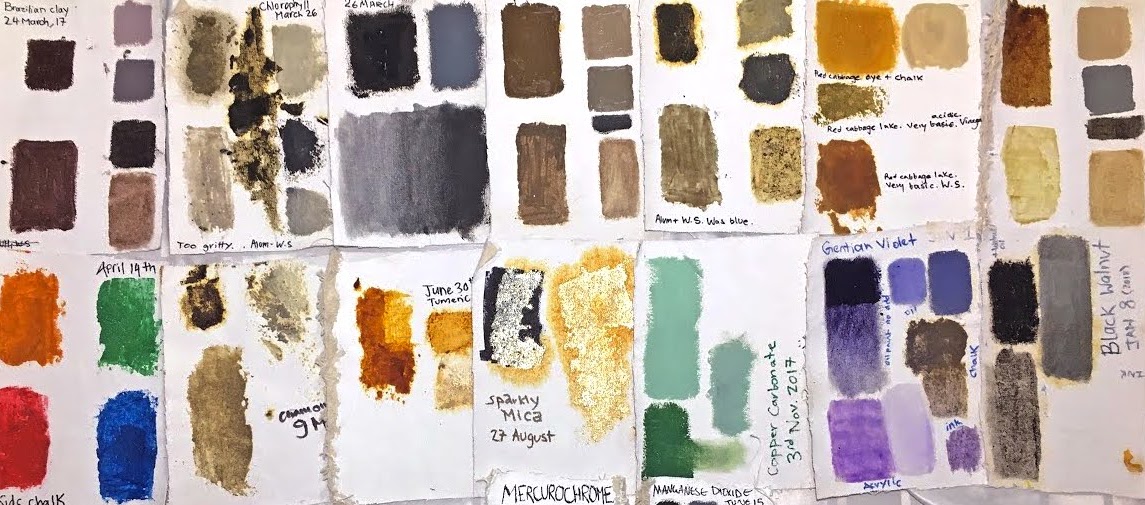 Brazilian clay
24 March, 17
Chlorophyll
March 26
Too gritty. Alum-W.S
26 March
Alum + W.S. Was blue.
Red cabbage dye + chalk
acidic.
Red cabbage lake. Very basic. Vinegar
Red cabbage lake.
Very basic. W.S.
April 14th
Kids chalk
9 M
June 30
Tumeric
sparkly
Mica
27 August
MERCUROCHROME
Copper Carbonate
3rd Nov. 2017
MANGANESE DIOXIDE
JUNE 15
Gentian Violet
oil
chalk
ink
Acrylic
Black Walnut
JAN 8 (2018)
INK